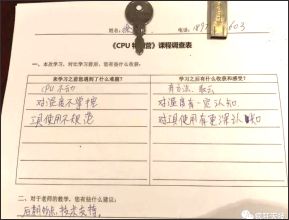 姓名: 徐 电话: 603
《CPU 特 营》课程调查表
一、本次学习,对比学习前后,您有些什么收获:
来学习之前您遇到了什么难题? 学习之后有什么收获和感受?
CPU 不 有方法、
对温度不掌握 对温度有一定认知
工具使用不规范 对工具使用有更深认知
二、对于老师的教学,您有些什么建议:
后期 技术支持。